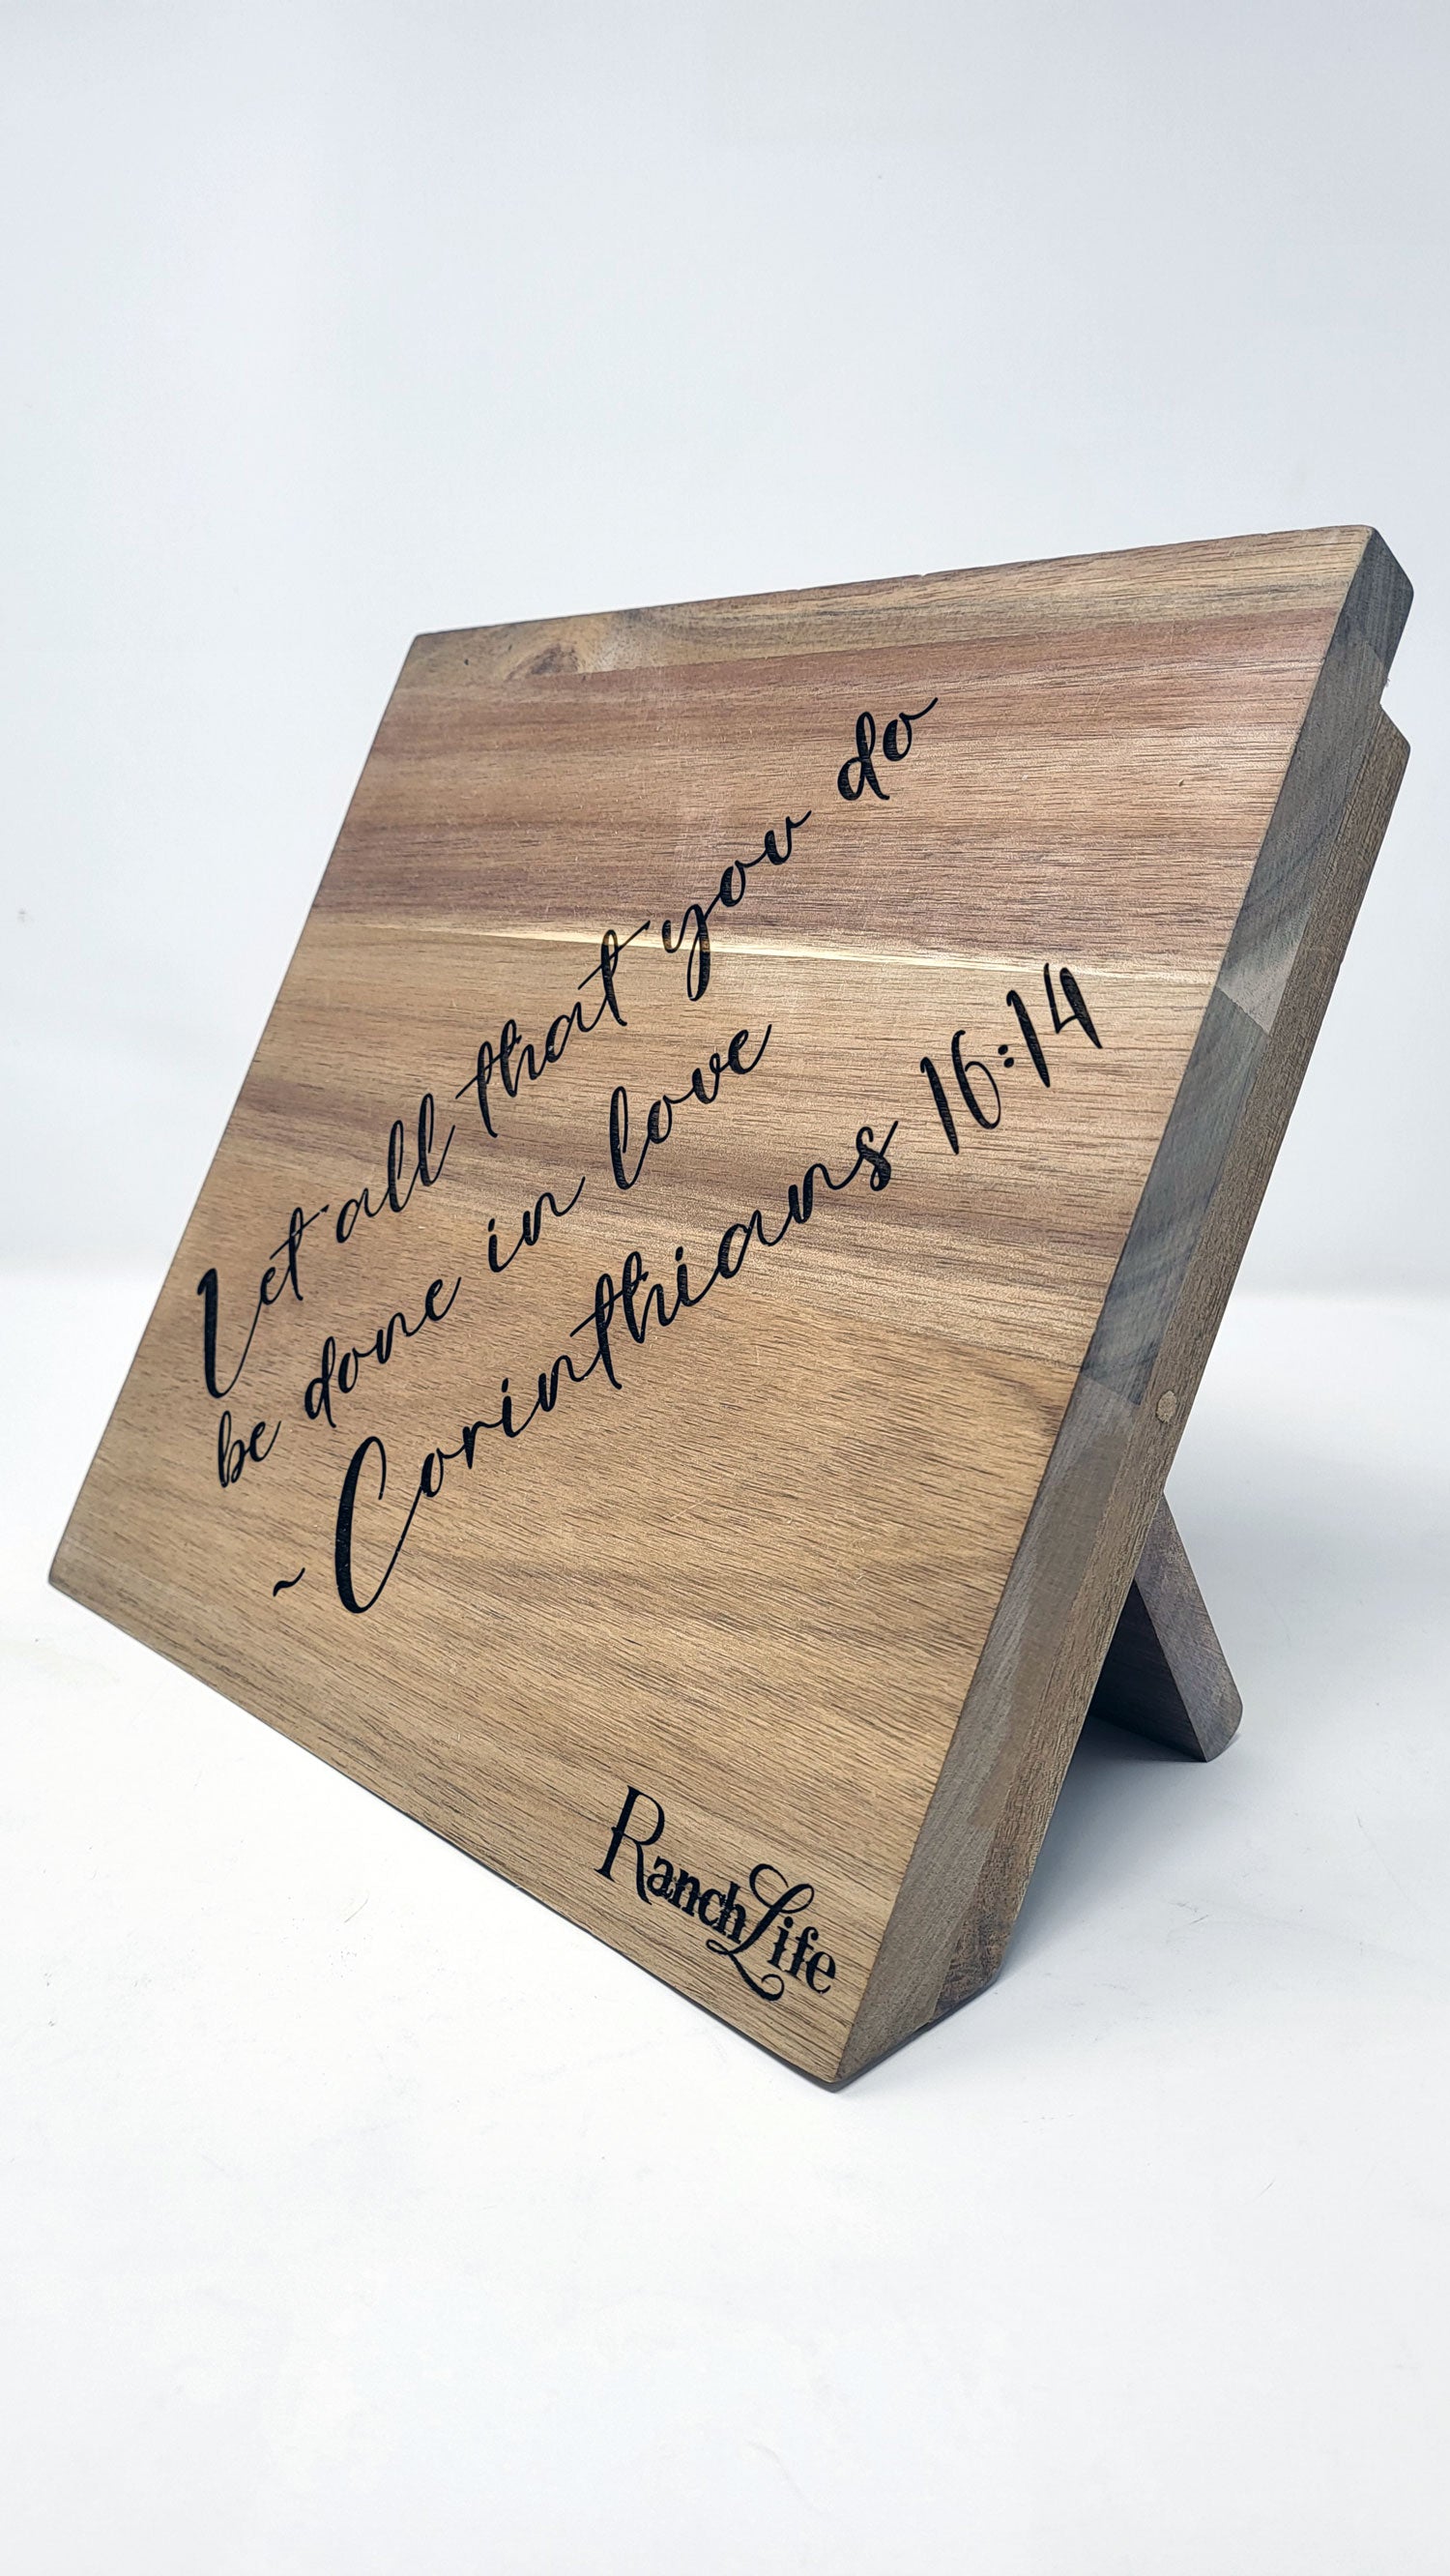 Let all that you do
be done in love
~Corinthians 16:14
RanchLife